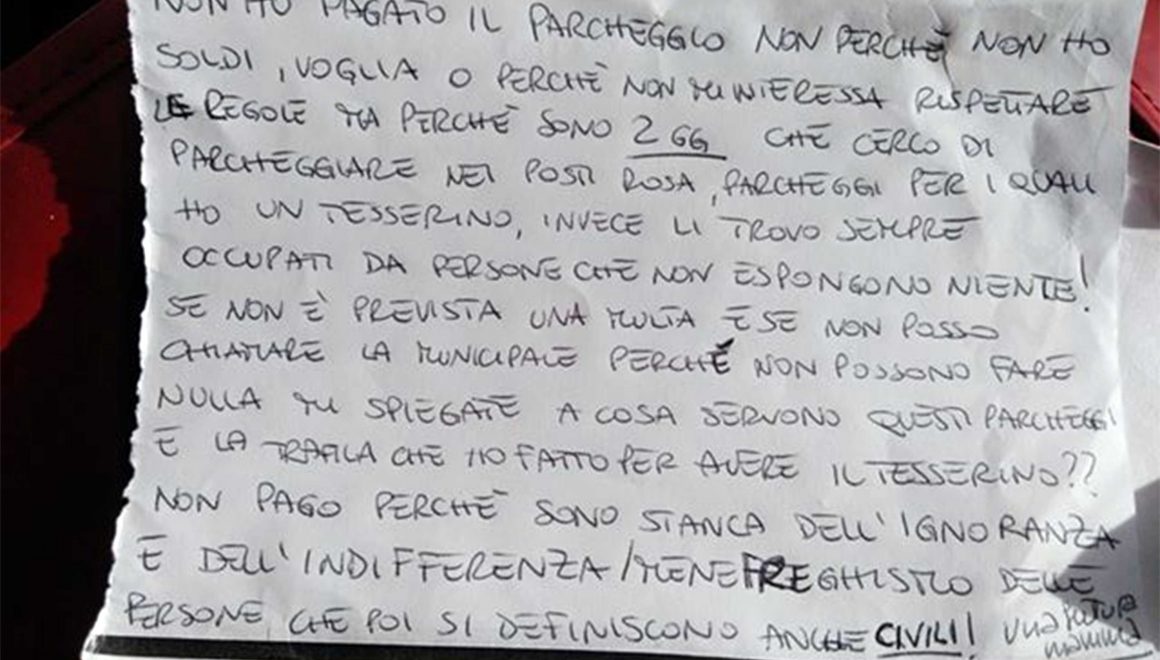 NON HO PAGATO IL PARCHEGGIO NON PERCHÈ NON HO
SOLDI, VOGLIA O PERCHÈ NON MI INTERESSA RISPETTARE
LE REGOLE MA PERCHÈ SONO 2 GG CHE CERCO DI
PARCHEGGIARE NEI POSTI ROSA, PARCHEGGI PER I QUALI
HO UN TESSERINO, INVECE LI TROVO SEMPRE
OCCUPATI DA PERSONE CHE NON ESPONGONO NIENTE!
SE NON È PREVISTA UNA MULTA E SE NON POSSO
CHIAMARE LA MUNICIPALE PERCHÈ NON POSSONO FARE
NULLA MI SPIEGATE A COSA SERVONO QUESTI PARCHEGGI
E LA TRAFILA CHE HO FATTO PER AVERE IL TESSERINO??
NON PAGO PERCHÈ SONO STANCA DELL'IGNORANZA
E DELL'INDIFFERENZA/MENEFREGHISMO DELLE
PERSONE, CHE POI SI DEFINISCONO ANCHE CIVILI! una futura
mamma